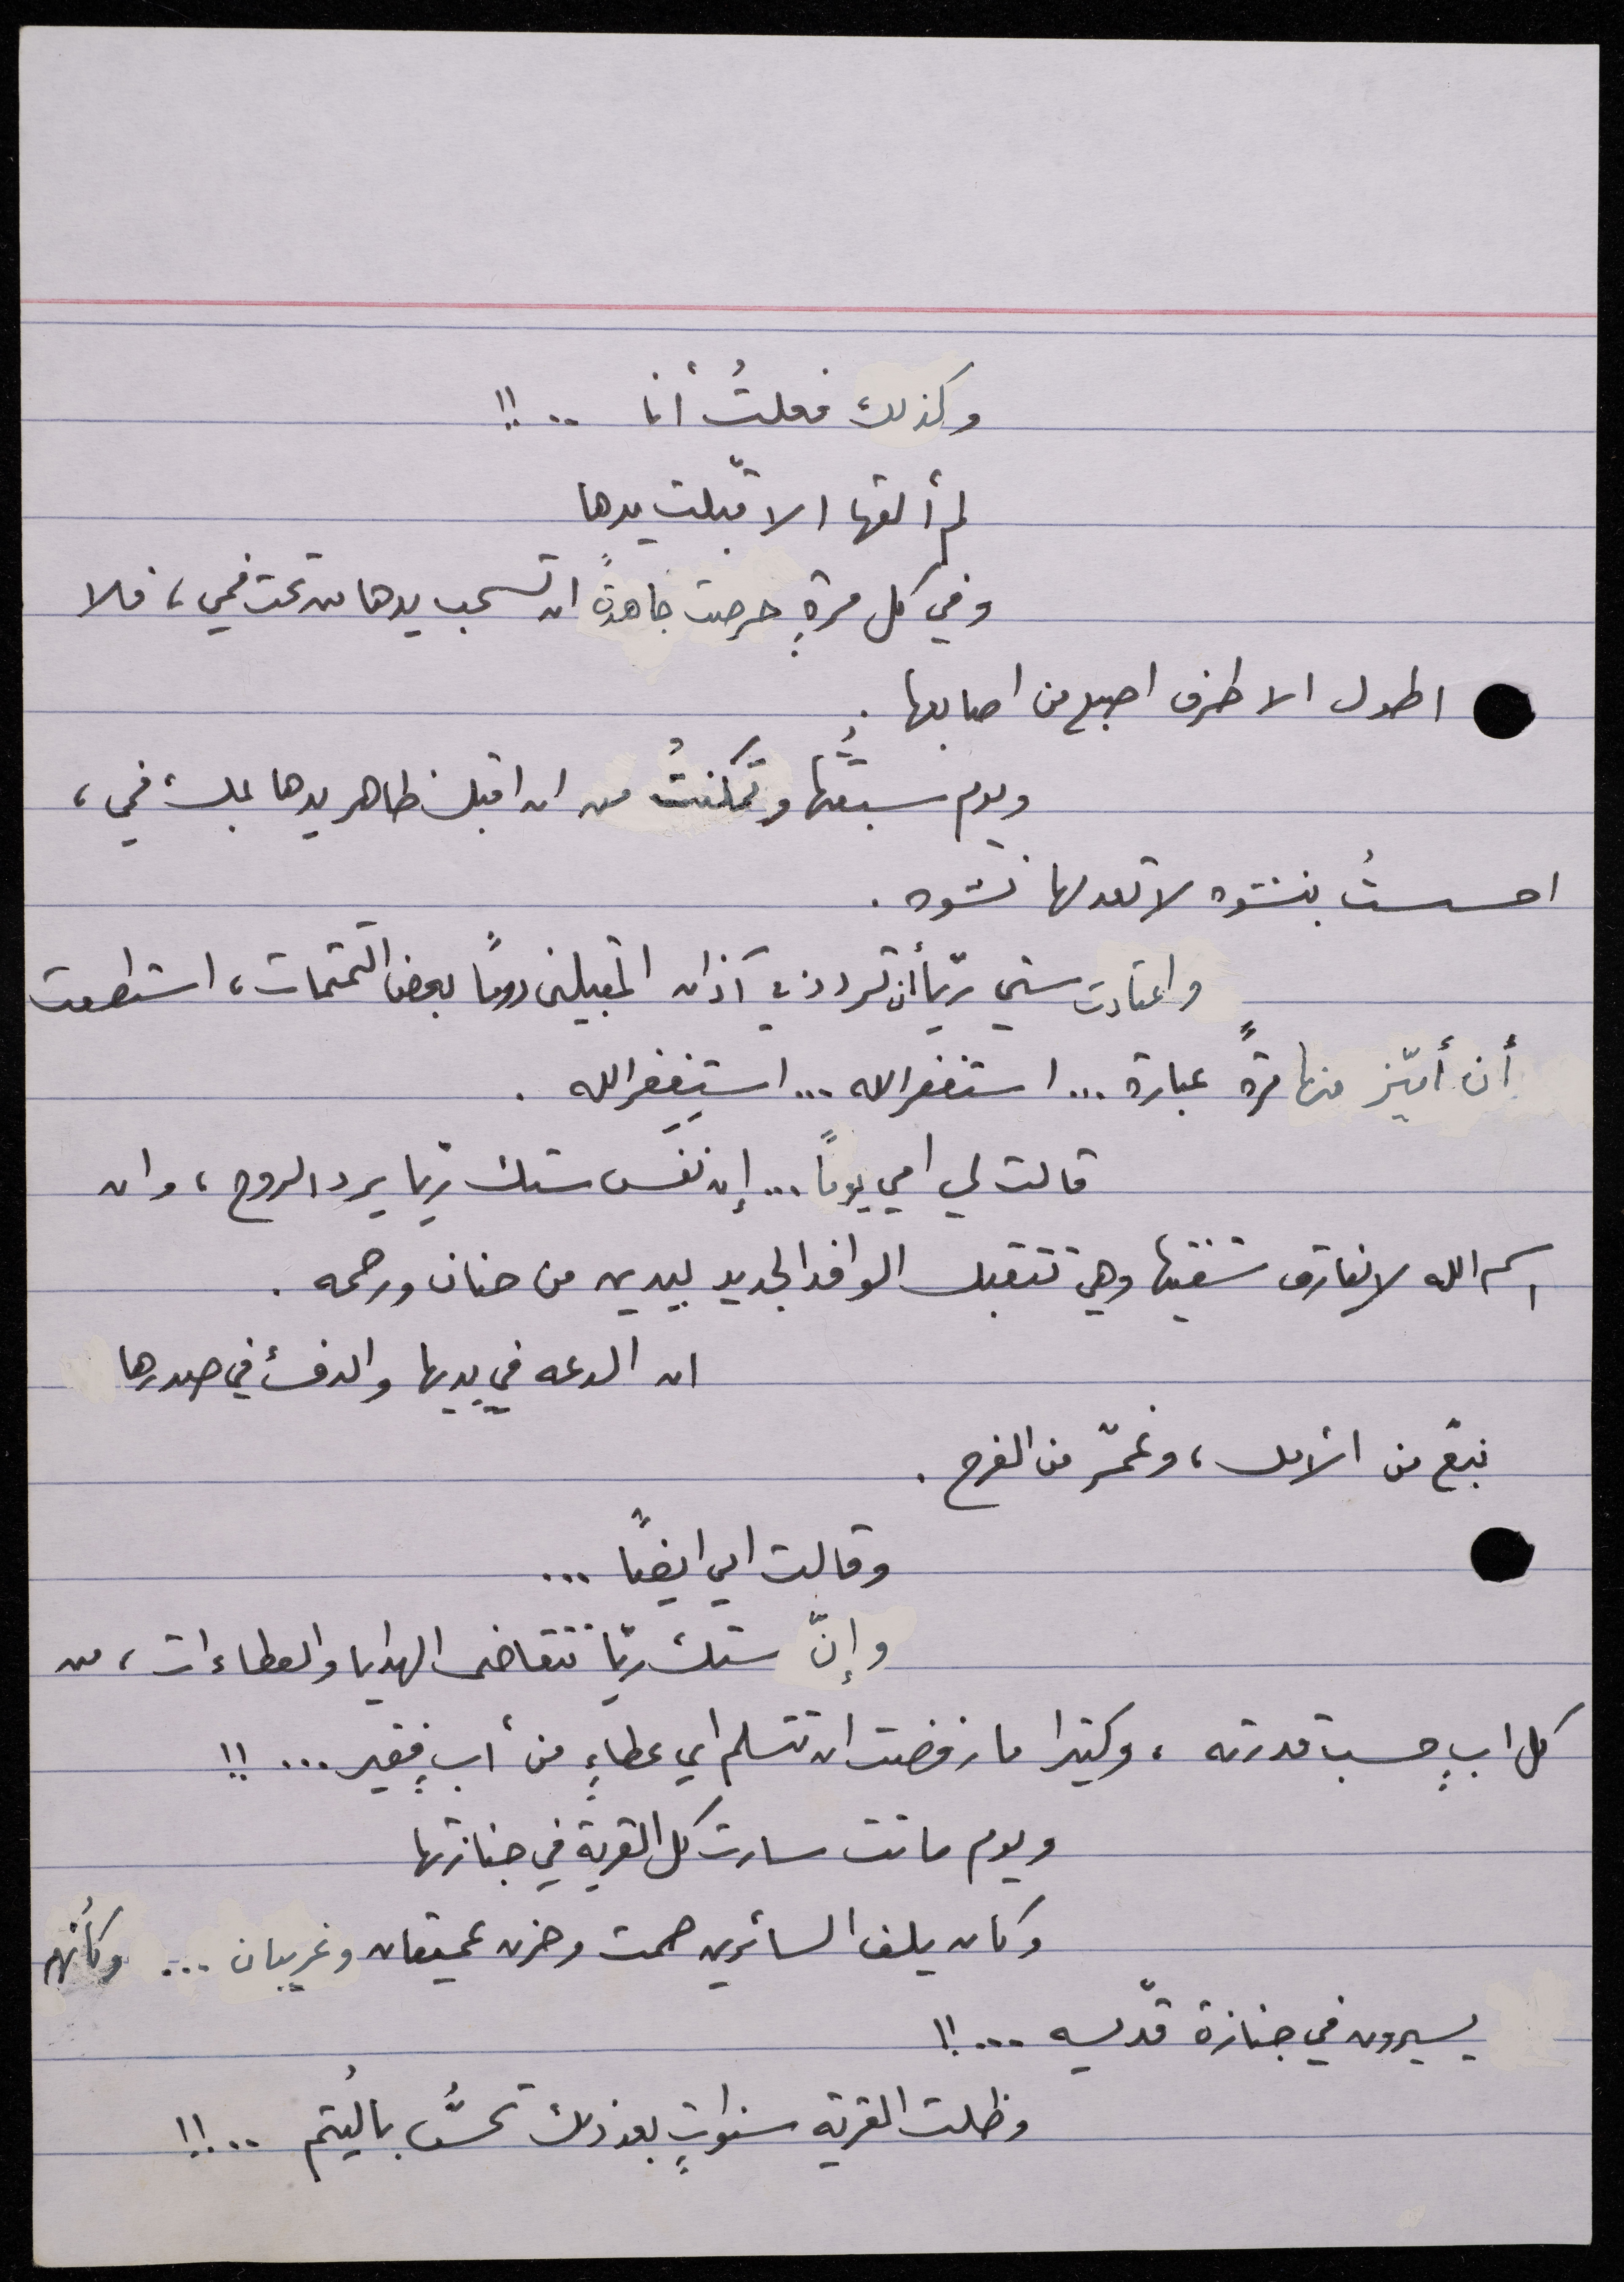 وكذلك فعلتُ أنا ..!!
لم ألقها الا قبّلت يدها
وفي كل مرةٍ حرصت جاهدةً ان تسحب يدها من تحت فمي، فلا
اطول الا طرف اصبع من اصابعها .
ويوم سبقتُها وتمكنتُ من ان اقبل ظاهر يدها بملء فمي،
احسستُ بنشوه لا تعدلها نشوه .
واعتادت ستي ريّا أن تردد في آذان المقبلين دوماً بعض التمتمات، استطعت
أن أميّز منها مرةً عبارة ... استغفر الله ... استغفر الله .
قالت لي امي يوماً ... إن نفَس ستك ريّا يرد الروح، وان
اسم الله لا يفارق شفتيها وهي تتقبل الوافد الجديد بيدين من حنان ورحمه .
ان الدعه في يديها والدفء في صدرها
نبعٌ من الأمل، وغمرٌ من الفرح .
وقالت امي ايضاً ...
وإنّ ستك ريّا تتقاضى الهدايا والعطاءات، من
كل ابٍ حسب قدرته، وكثيرا ما رفضت ان تتسلم اي عطاءٍ من أبٍ فقير ...!!
ويوم ماتت سارت كل القرية في جنازتها
وكان يلف السائرين صمت وحزن عميقان وغريبان ... وكأنهم
يسيرون في جنازة قدّيسه ...!!
وظلت القريه سنواتٍ بعد ذلك تحسُّ باليُتم ..!!